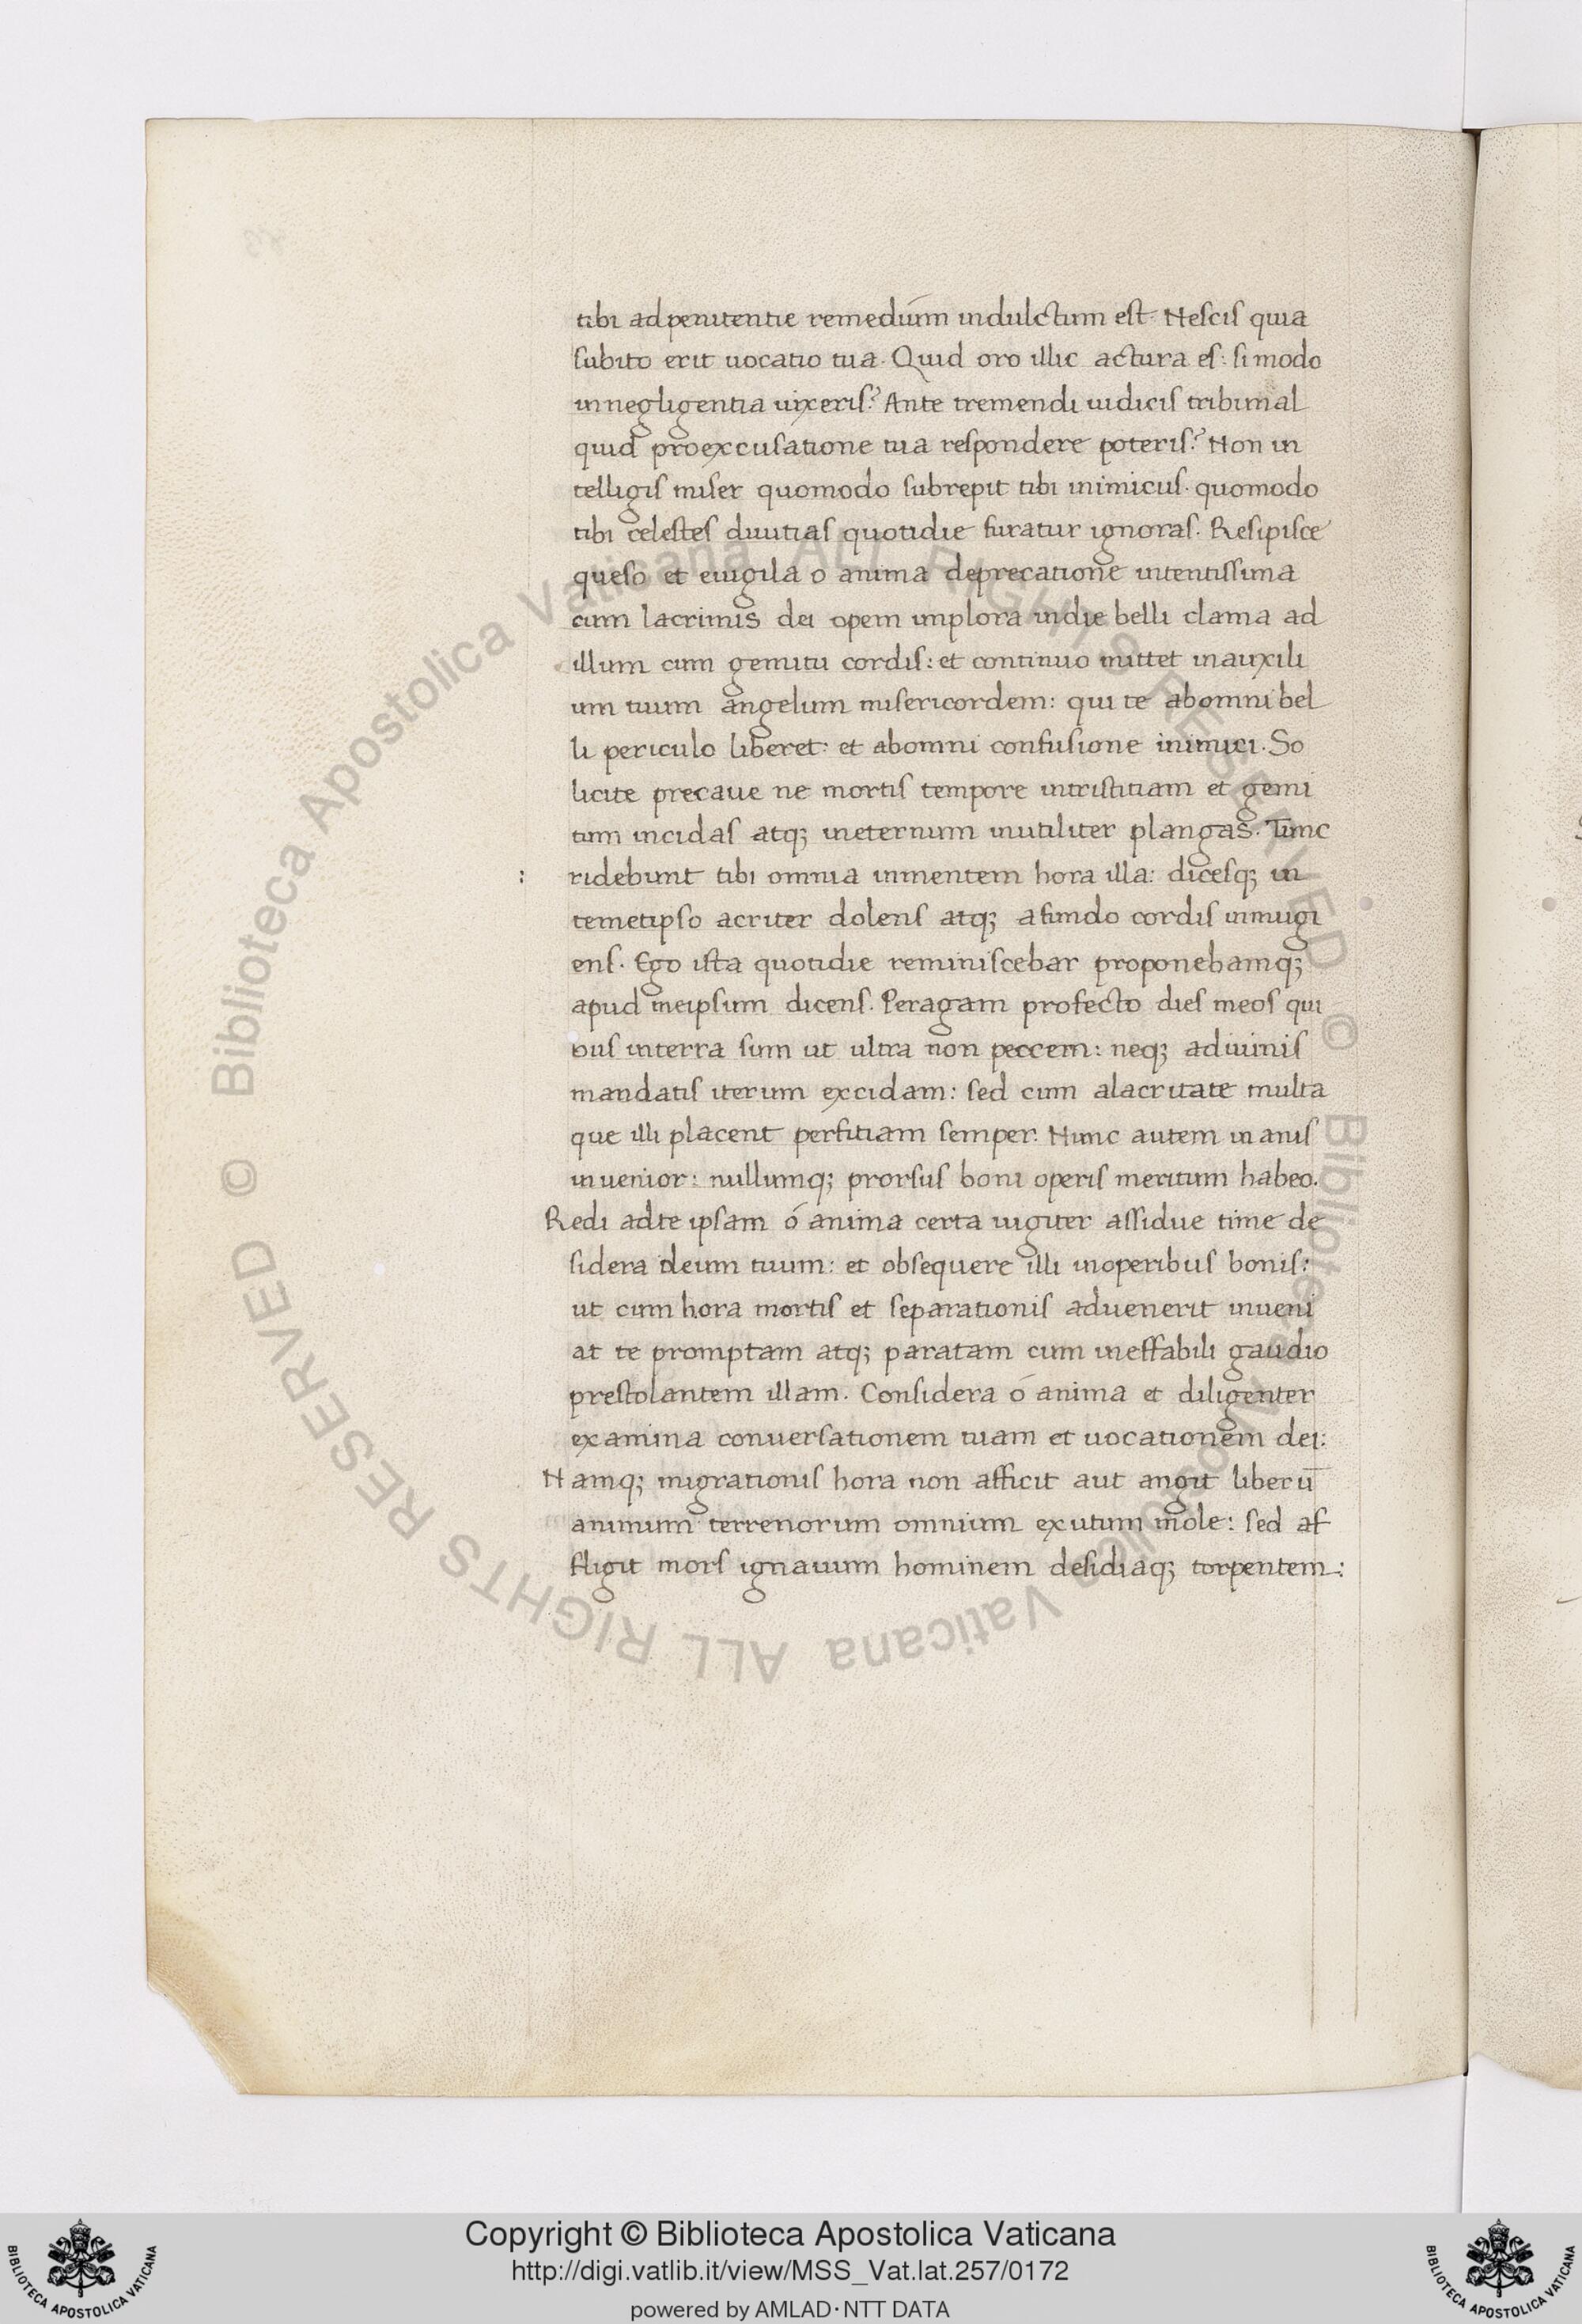 tibi ad penitentie remedium indulctum est. Nescis quia
subito erit uocatio tua. Quid oro illic actura es: si modo
in negligentia uixeris? Ante tremendi iudicis tribunal
quid pro excusatione tua respondere poteris? Non in
telligis miser quomodo subrepit tibi inimicus. quomodo
tibi celestes diuitias quotidie furatur ignoras. Resipisce
queso et euigila o anima deprecatione intentissima
cum lacrimis dei opem implora in die belli clama ad
illum cum gemitu cordis: et continuo mittet in auxili
um tuum angelum misericordem: qui te ab omni bel
li periculo liberet: et ab omni confusione inimici. So
licite precaue ne mortis tempore in tristitiam et gemi
tum incidas atq; in eternum inutiliter plangas. Tunc
: ridebunt tibi omnia in mentem hora illa: dicesq; in
temetipso acriter dolens atq; a fundo cordis inmugi
ens. Ego ista quotidie reminiscebar proponebamq;
apud meipsum dicens. Peragam profecto dies meos qui
bus in terra sum ut ultra non peccem: neq; a diuinis
mandatis iterum excidam: sed cum alacritate multa
que illi placent perfitiam semper. Nunc autem inanis
inuenior: nullumq; prorsus boni operis meritum habeo.
Redi ad te ipsam ó anima certa uigiter assidue time de
sidera deum tuum: et obsequere illi in operibus bonis:
ut cum hora mortis et separationis aduenerit inueni
at te promptam atq; paratam cum ineffabili gaudio
prestolantem illam. Considera ó anima et diligenter
examina conuersationem tuam et uocationem dei:
Namq; migrationis hora non afficit aut angit liberū
animum terrenorum omnium exutum mole: sed af
fligit mors ignauum hominem desidiaq; torpentem:
© Biblioteca Apostolica Vaticana ALL RIGHTS RESERVED © Biblioteca Apostolica Vaticana ALL RIGHTS RESERVED
Copyright © Biblioteca Apostolica Vaticana
http://digi.vatlib.it/view/MSS_Vat.lat.257/0172
powered by AMLAD·NTT DATA
BIBLIOTECA APOSTOLICA VATICANA
BIBLIOTECA APOSTOLICA VATICANA